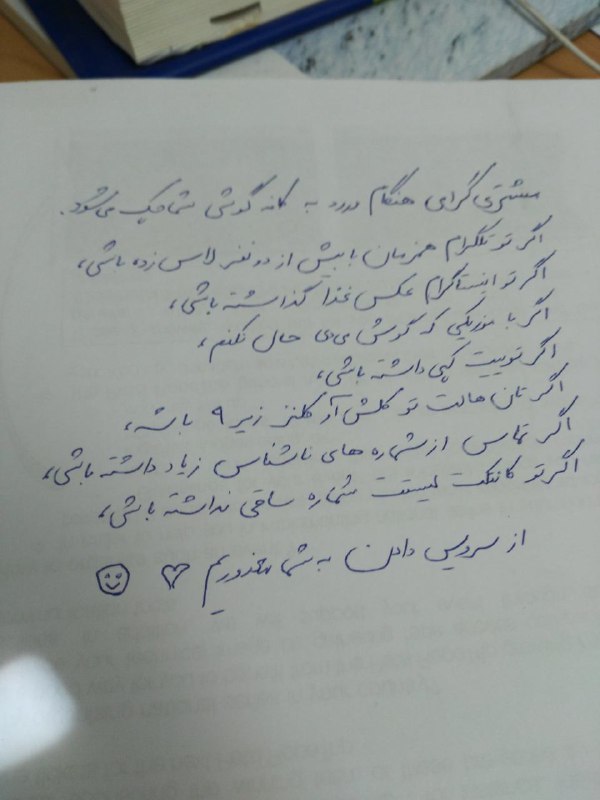 مشتری گرامی هنگام ورود به کافه گوشی شما چک می‌شود.
اگر تو تلگرام همزمان با بیش از دو نفر لاس زده باشی،
اگر تو اینستاگرام عکس غذا گذاشته باشی،
اگر با موزیکی که گوش میدی حال نکنم،
اگر توییت کپی داشته باشی،
اگر تان هالت تو کلش آف کلنز زیر ۹ باشه،
اگر تماس از شماره های ناشناس زیاد داشته باشی،
اگر تو کانتکت لیستت شماره ساقی نداشته باشی،
از سرویس دادن به شما معذوریم ♡ ☺